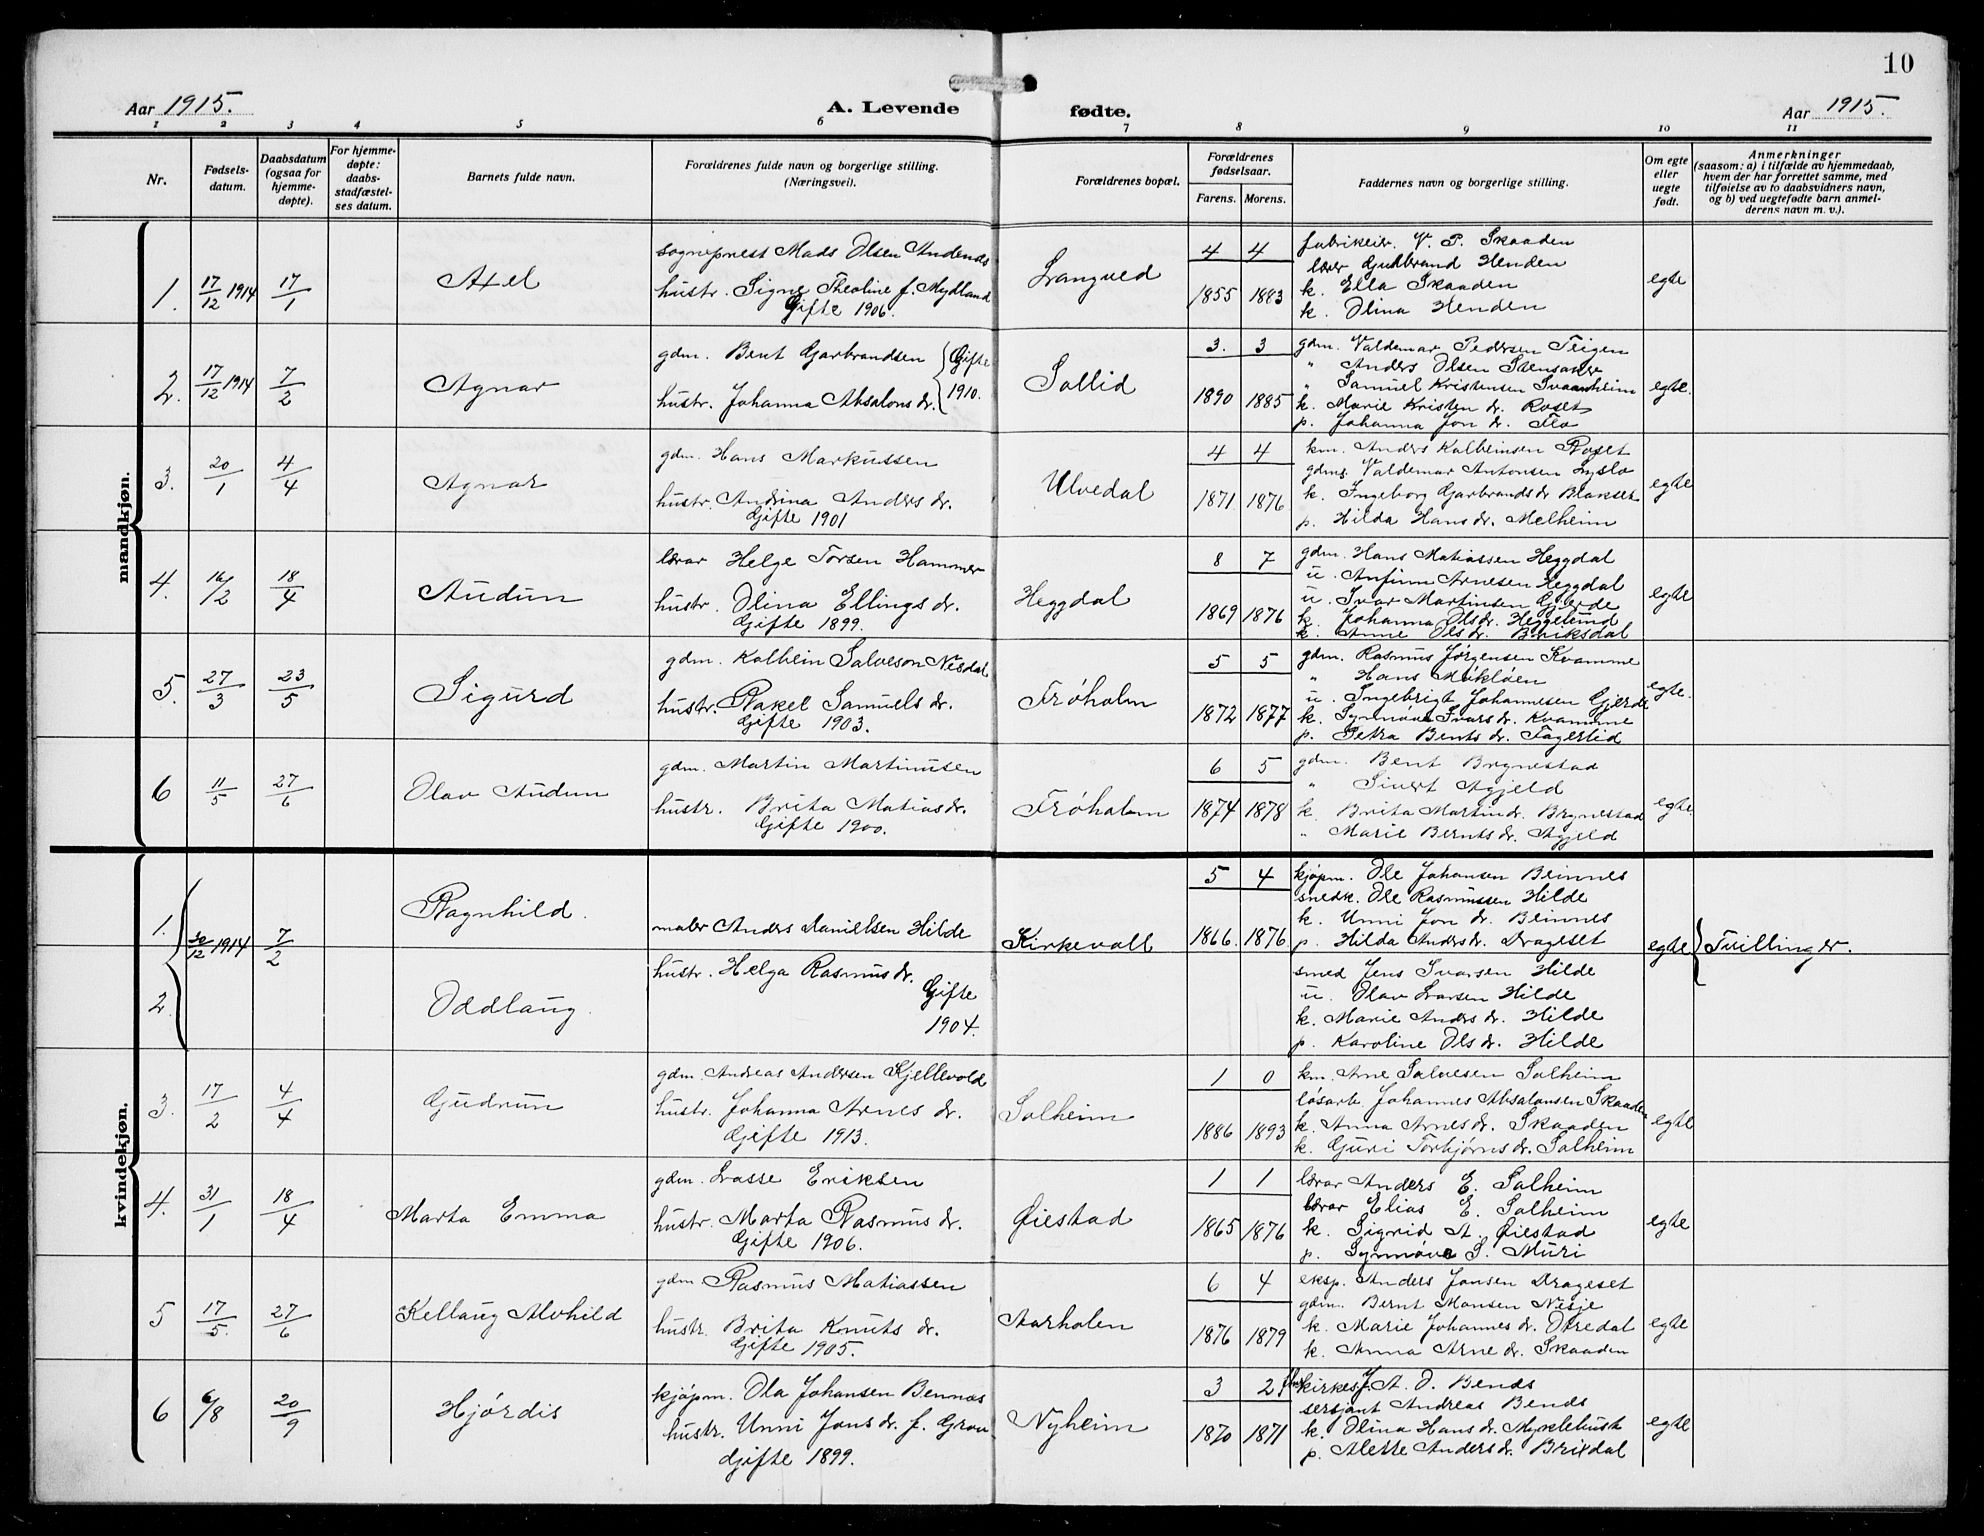 10
Aar 1915.
A. Levende
fødte.
Aar 1915.
1 2 3 4 5 6 7 8 9 10 11
Nr.
Fødsels-
datum.
Daabsdatum
(ogsaa for
hjemme-
døpte).
For hjemme-
døpte:
daabs-
stadfæstel-
ses datum.
Barnets fulde navn.
Forældrenes fulde navn og borgerlige stilling.
(Næringsvei).
Forældrenes bopæl.
Forældrenes
fødselsaar.
Farens. Morens.
Faddernes navn og borgerlige stilling.
Om egte
eller
uegte
født.
Anmerkninger
(saasom: a) i tilfælde av hjemmedaab,
hvem der har forrettet samme, med
tilføielse av to daabsvidners navn,
og b) ved uegtefødte barn anmel-
derens navn m. v.).
mandkjøn.
1. 17/12 1914 17/1 Axel
sognepræst Mads Olsen Andenæs
hustr. Signe Theoline f. Mydland
Gifte 1906.
Langved
4 4
1855 1883
fabrikeier V. P. Skaaden
lærer Gudbrand Henden
k. Ella Skaaden
k. Olina Henden
egte
2. 17/12 1914 7/2 Agnar
gdm. Bent Garbrandsen
hustr. Johanna Absalons dr.
Gifte
1910.
Sollid
3. 3
1890 1885
gdm. Valdemar Pedersen Teigen
" Anders Olsen Stensaker
" Samuel Kristensen Svaanheim
k. Marie Kristen dr. Roset
p. Johanna Jon dr. Flo
egte.
3. 20/1 4/4 Agnar
gdm. Hans Markussen
hustr. Andrina Anders dr.
Gifte 1901
Ulvedal
4 4
1871 1876
km. Anders Kolbeinsen Roset
gdms. Valdemar Antonsen Lyslo
k. Ingeborg Garbrands dr Blakset
p. Hilda Hans dr. Melheim
egte
4. 16/2 18/4 Audun
lærar Helge Torsen Hammer
hustr. Olina Ellings dr.
Gifte 1899.
Heggdal
8 7
1869 1876
gdm. Hans Matiassen Heggdal
u. Anfinn Arnesen Heggdal
u. Ivar Martinsen Gjerde
k. Johanna Ols dr. Heggelund
k. Anne Ols dr. Briksdal
egte
5. 27/3 23/5 Sigurd
gdm. Kolbein Salveson Nesdal
hustr. Rakel Samuels dr.
Gifte 1903.
Frøholm
5 5
1872 1877
gdm. Rasmus Jørgensen Kvamme
" Hans Mykløen
u. Ingebrigt Johannesen Gjerde
k. Synnøve Ivars dr. Kvamme
p. Petra Bents dr. Fagerlid
egte.
6 11/5 27/6 Olav Audun
gdm. Martin Martinusen
hustr. Brita Matias dr.
Gifte 1900.
Frøholm
6 5
1874 1878
gdm. Bent Brynestad
" Sivert Agjeld
k. Brita Martin dr. Brynestad
" Marie Bernts dr. Agjeld
egte.
kvindekjøn.
1. 30/12 1914 7/2 Ragnhild.
maler Anders Danielsen Hilde
Kirkevoll
5 4
1866. 1876.
kjøpm. Ole Johansen Beinnes
snedk. Ole Rasmussen Hilde
k. Unni Jon dr. Beinnes
p. Hilda Anders dr. Drageset
egte Tvillinger.
2. Oddlaug.
hustr. Helga Rasmus dr.
Gifte
1904.
smed Jens Ivarsen Hilde
u. Olav Larsen Hilde
k. Marie Anders dr. Hilde
p. Karoline Ols dr. Hilde
3. 17/2 4/4 Gudrun
gdm. Andreas Andersen Kjellevold
hustr. Johanna Arnes dr.
Gifte 1913.
Solheim
1 0
1886 1893
km. Arne Salvesen Solheim
løsarb. Johannes Absalonsen Skaaden
k. Anna Arnes dr. Skaaden
k. Guri Torbjørns dr. Solheim
egte
4. 31/1 18/4 Marta Emma
gdm. Lasse Eriksen
hustr. Marta Rasmus dr.
Gifte 1906.
Øiestad
1 1
1865 1876
lærar Anders E. Solheim
lærar Elias E. Solheim
k. Sigrid A. Øiestad
p. Synnøve S. Muri
egte
5 17/5. 27/6 Kellaug Alvhild
gdm. Rasmus Matiassen
hustr. Brita Knuts dr.
Gifte 1905.
Aarholen
6 4
1876 1879
eksp. Anders Jonsen Drageset
gdm. Bernt Monsen Nesje
k. Marie Johannes dr. Otredal
k. Anna Arne dr. Skaaden
egte
6 6/8 20/9 Hjørdis
kjøpm. Ola Johansen Bennæs
hustr. Unni Jons dr. f. Grov
Gifte 1899.
Nyheim
3 2
1870 1871
kirkes. A. O. Bends
sersjant Andreas Bends
k. Olina Hans dr. Myklebust
p. Alette Anders dr. Brixdal
egte